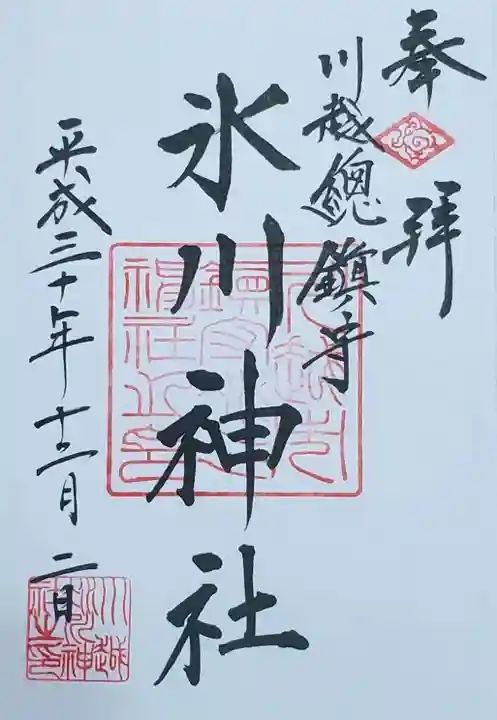 奉拝
川越總鎮守
氷川神社
平成三十年十二月二日